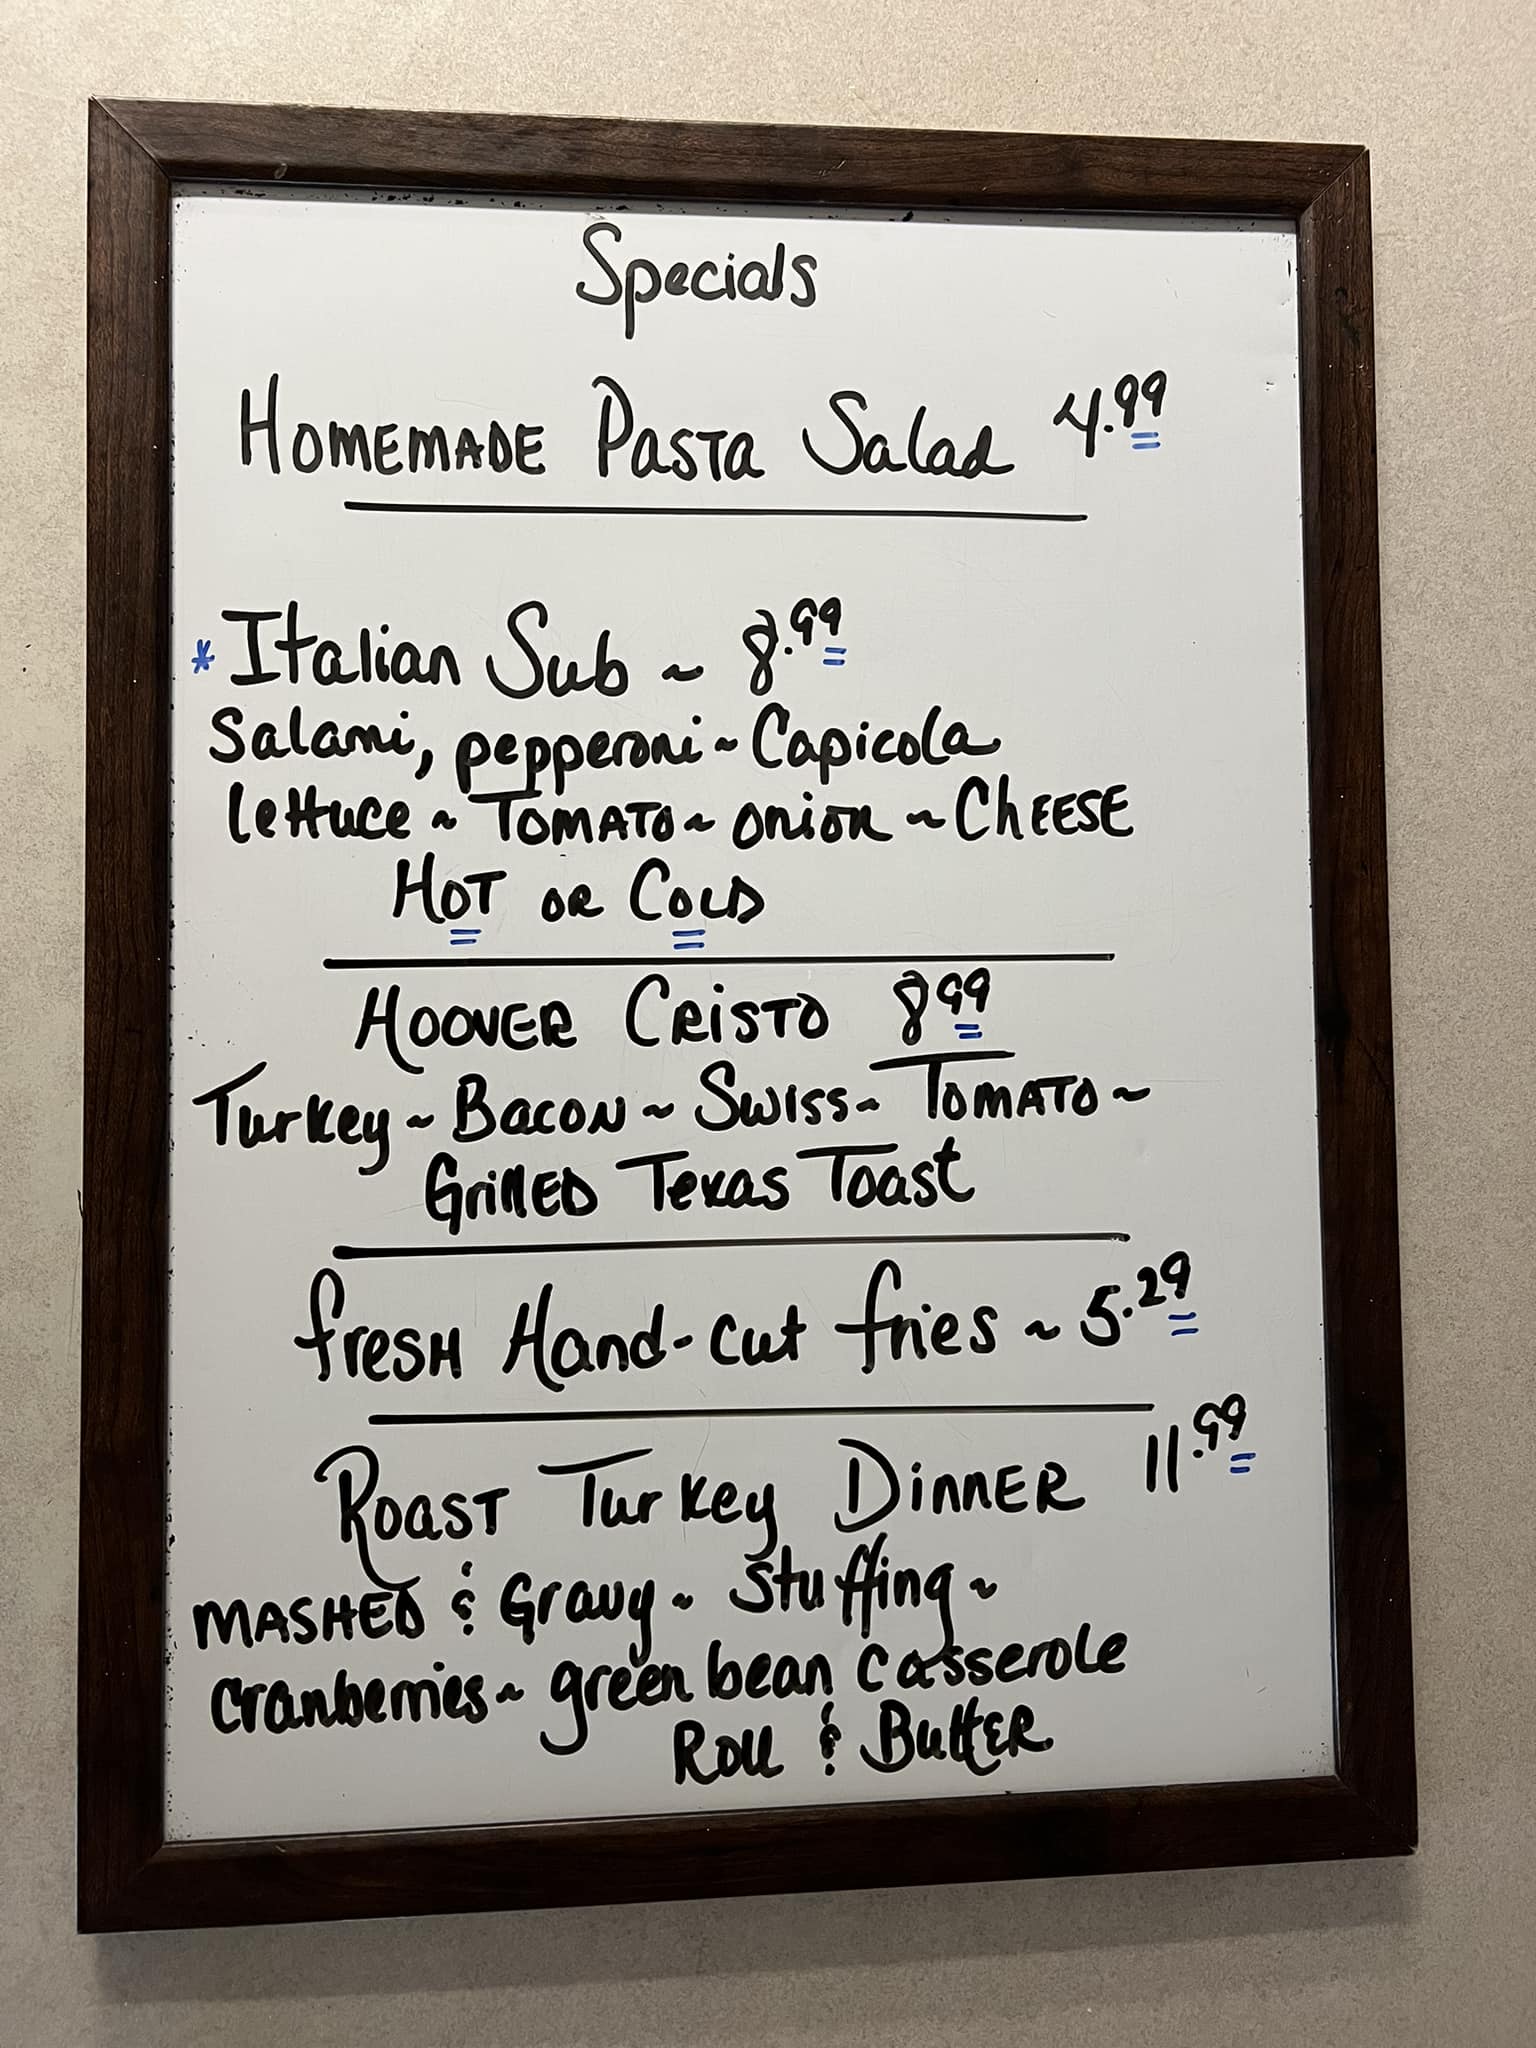 Specials
HOMEMADE PASTA Salad 4.99
* Italian Sub ~ 8.99
Salami, pepperoni ~ Capicola
lettuce ~ TOMATO ~ onion ~ CHEESE
HOT OR COLD
HOOVER CRISTO 8 99
Turkey ~ BACON ~ SWISS ~ TOMATO ~
GrillED Texas Toast
fresH Hand-cut fries ~ 5.29
ROAST Turkey DINNER 11.99
MASHED & Gravy ~ Stuffing ~
cranberries ~ green bean casserole
ROLL & ButtER